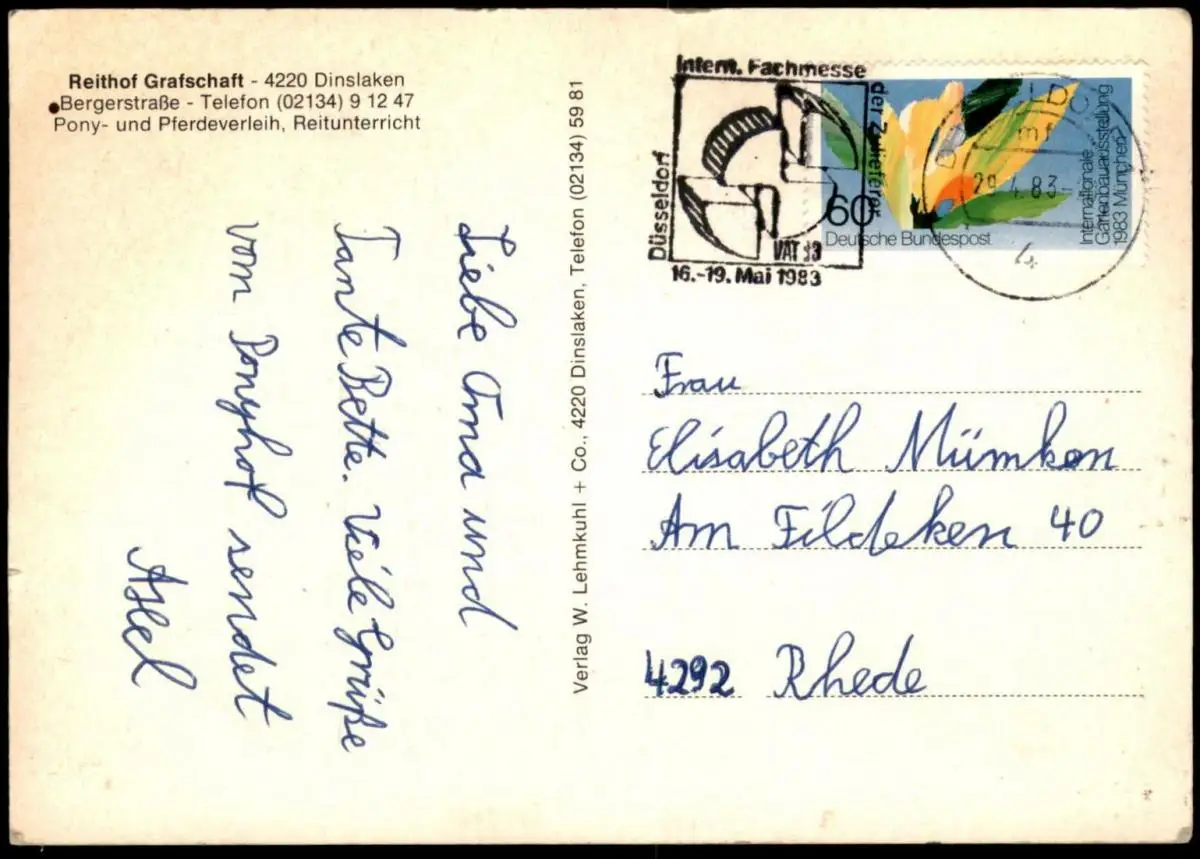 Reithof Grafschaft - 4220 Dinslaken
Bergerstraße - Telefon (02134) 9 12 47
Pony- und Pferdeverleih, Reitunterricht
Liebe Oma und
Tante Bette. Viele Grüße
vom Ponyhof sendet
Verlag W. Lehmkuhl + Co., 4220 Dinslaken, Telefon (02134) 59 81
Intern. Fachmesse
der Zulieferer
Düsseldorf
VAT 83
16.-19. Mai 1983
60
Deutsche Bundespost
Internationale
Gartenbauausstellung
1983 München
29.4.83
Frau
Elisabeth Mümken
Am Fildeken 40
4292 Rhede